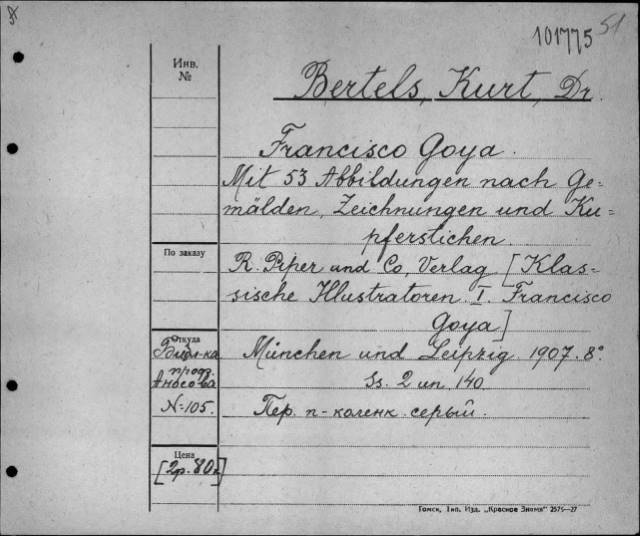 101775 51
Инв.
№
Bertels, Kurt, Dr.
Francisco Goya.
Mit 53 Abbildungen nach Ge=
mälden, Zeichnungen und Ku=
pferstichen.
По заказу
R. Piper und Co, Verlag [Klas=
sische Illustratoren. I. Francisco
Goya]
Откуда
München und Leipzig 1907. 8°
прод.
Аносова
Ss. 2 un. 140.
№ 105.
Пер. п-коленк. серый.
Цена
[2р. 80к]
Томск, Тип. Изд. „Красное Знамя" 2575—27